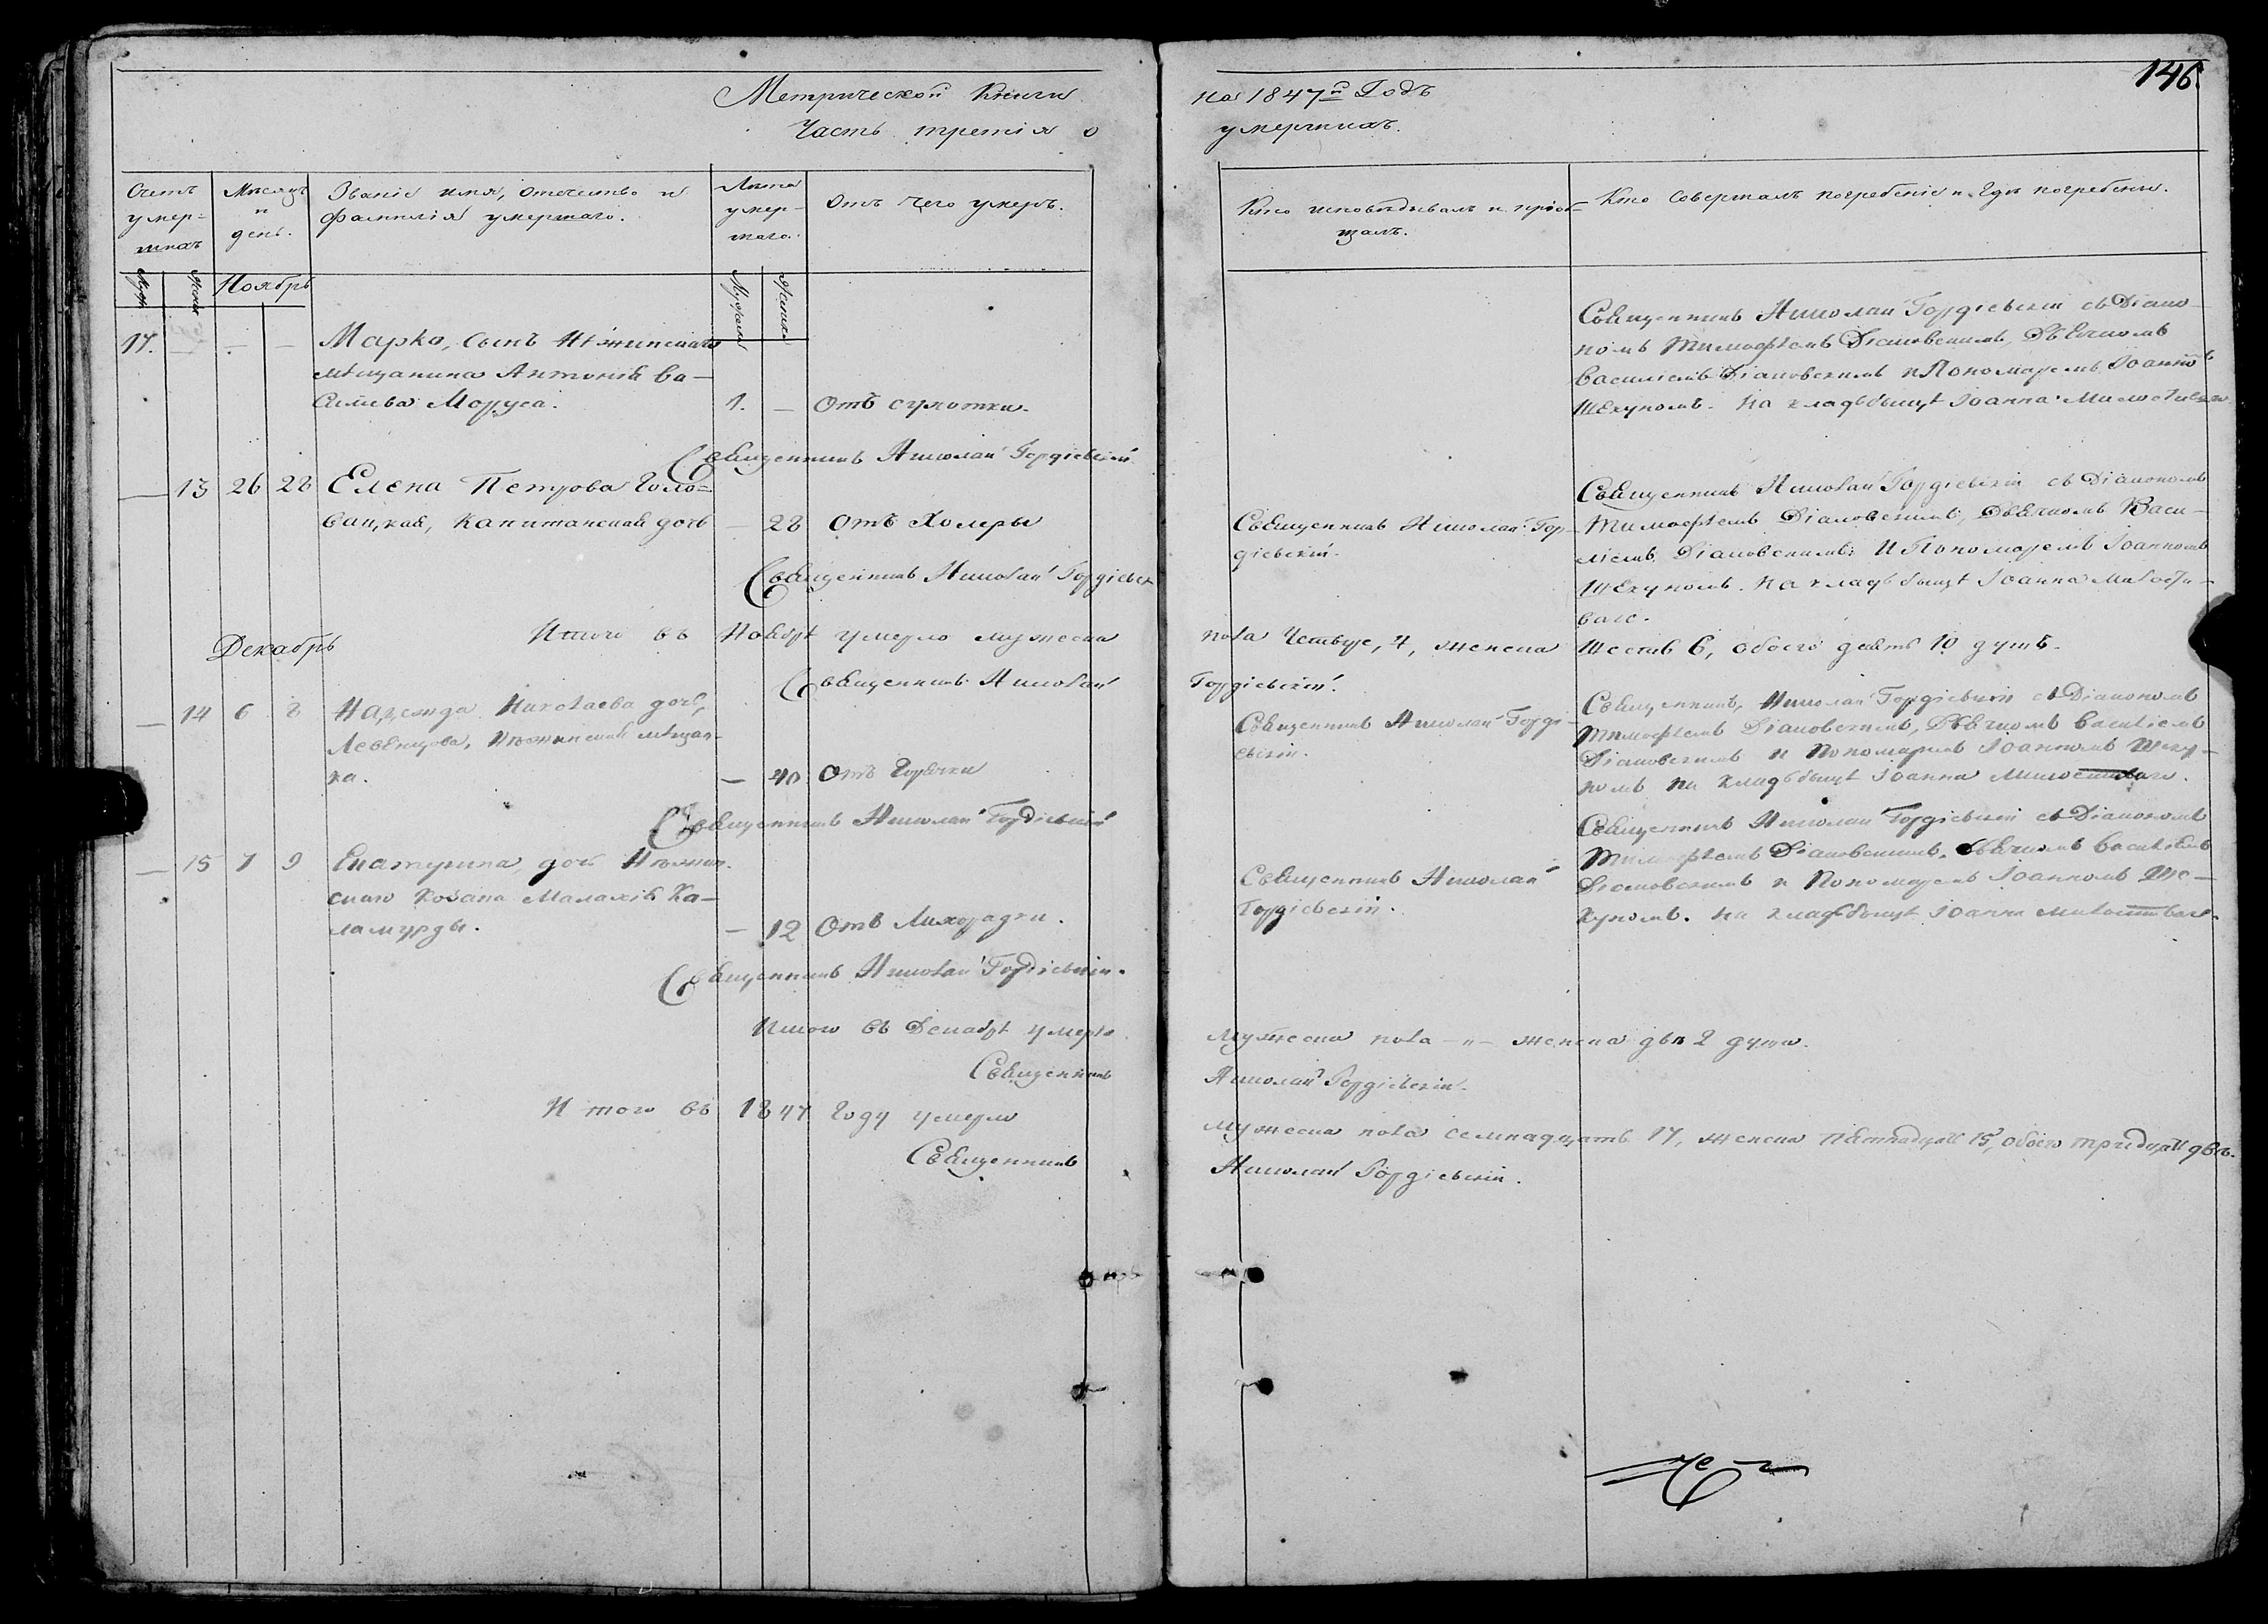 146.
Метрической Книги на 1847й Годъ
Часть третія о умершихъ.
Счетъ умер-шихъ
Мѣсяцъ и день.
Званіе имя, отечество и фамилія умершаго.
Лѣта умер-шаго.
Отъ чего умеръ.
Кто исповѣдывалъ и пріоб-щалъ.
Кто совершалъ погребеніе и гдѣ погребены.
Ноябрь
17. — — — Марко, сынъ Нѣжинскаго
мѣщанина Антонія Ва-
силіева Моруса. 1. — Отъ сухотки.
Священникъ Николай Гордіевскій
Священникъ Николай Гордіевскій съ Діако-
номъ Тимофѣемъ Діаковскимъ, Дьячкомъ
Василіемъ Діаковскимъ и Пономаремъ Іоанномъ
Шекуномъ. На кладбыщѣ Іоанна Милостиваго
— 13 26 28 Елена Петрова Голо-
вацкая, Капитанская дочь — 28 Отъ Холеры
Священникъ Николай Гордіевск
Священникъ Николай Гор-
діевскій.
Священникъ Николай Гордіевскій съ Діакономъ
Тимофѣемъ Діаковскимъ, Дьячкомъ Васи-
ліемъ Діаковскимъ и Пономаремъ Іоанномъ
Шекуномъ. На кладбыщѣ Іоанна Милости-
ваго.
Итого въ Ноябрѣ умерло мужеска пола Четыре, 4, женска Шесть 6, обоего десять 10 душъ.
Священникъ Николай Гордіевскій.
Декабрь
— 14 6 8 Надежда Николаева дочь,
Левенцова, Нѣжинская мѣщан-
ка. — 40 Отъ Горячки
Священникъ Николай Гордіевскій
Священникъ Николай Горді-
евскій.
Священникъ, Николай Гордіевскій съ Діакономъ
Тимофѣемъ Діаковскимъ, Дьячкомъ Василіемъ
Діаковскимъ и Пономаремъ Іоанномъ Шеку-
номъ на кладбыщѣ Іоанна Милостиваго.
— 15 7 9 Екатерина, дочь Нѣжин-
скаго Козака Малахія Ка-
ламурды. — 12 Отъ Лихорадки.
Священникъ Николай Гордіевскій.
Священникъ Николай
Гордіевскій.
Священникъ Николай Гордіевскій съ Діакономъ
Тимофѣемъ Діаковскимъ, Дьячкомъ Василіемъ
Діаковскимъ и Пономаремъ Іоанномъ Ше-
куномъ. На кладбыщѣ Іоанна Милостиваго.
Итого въ Декабрѣ умерло мужеска пола — „ — женска двѣ 2 души.
Священникъ Николай Гордіевскій.
Итого въ 1847 Году умерло мужеска пола семнадцать 17, женска пятнадцать 15, обоего тридцать двѣ.
Священникъ Николай Гордіевскій.